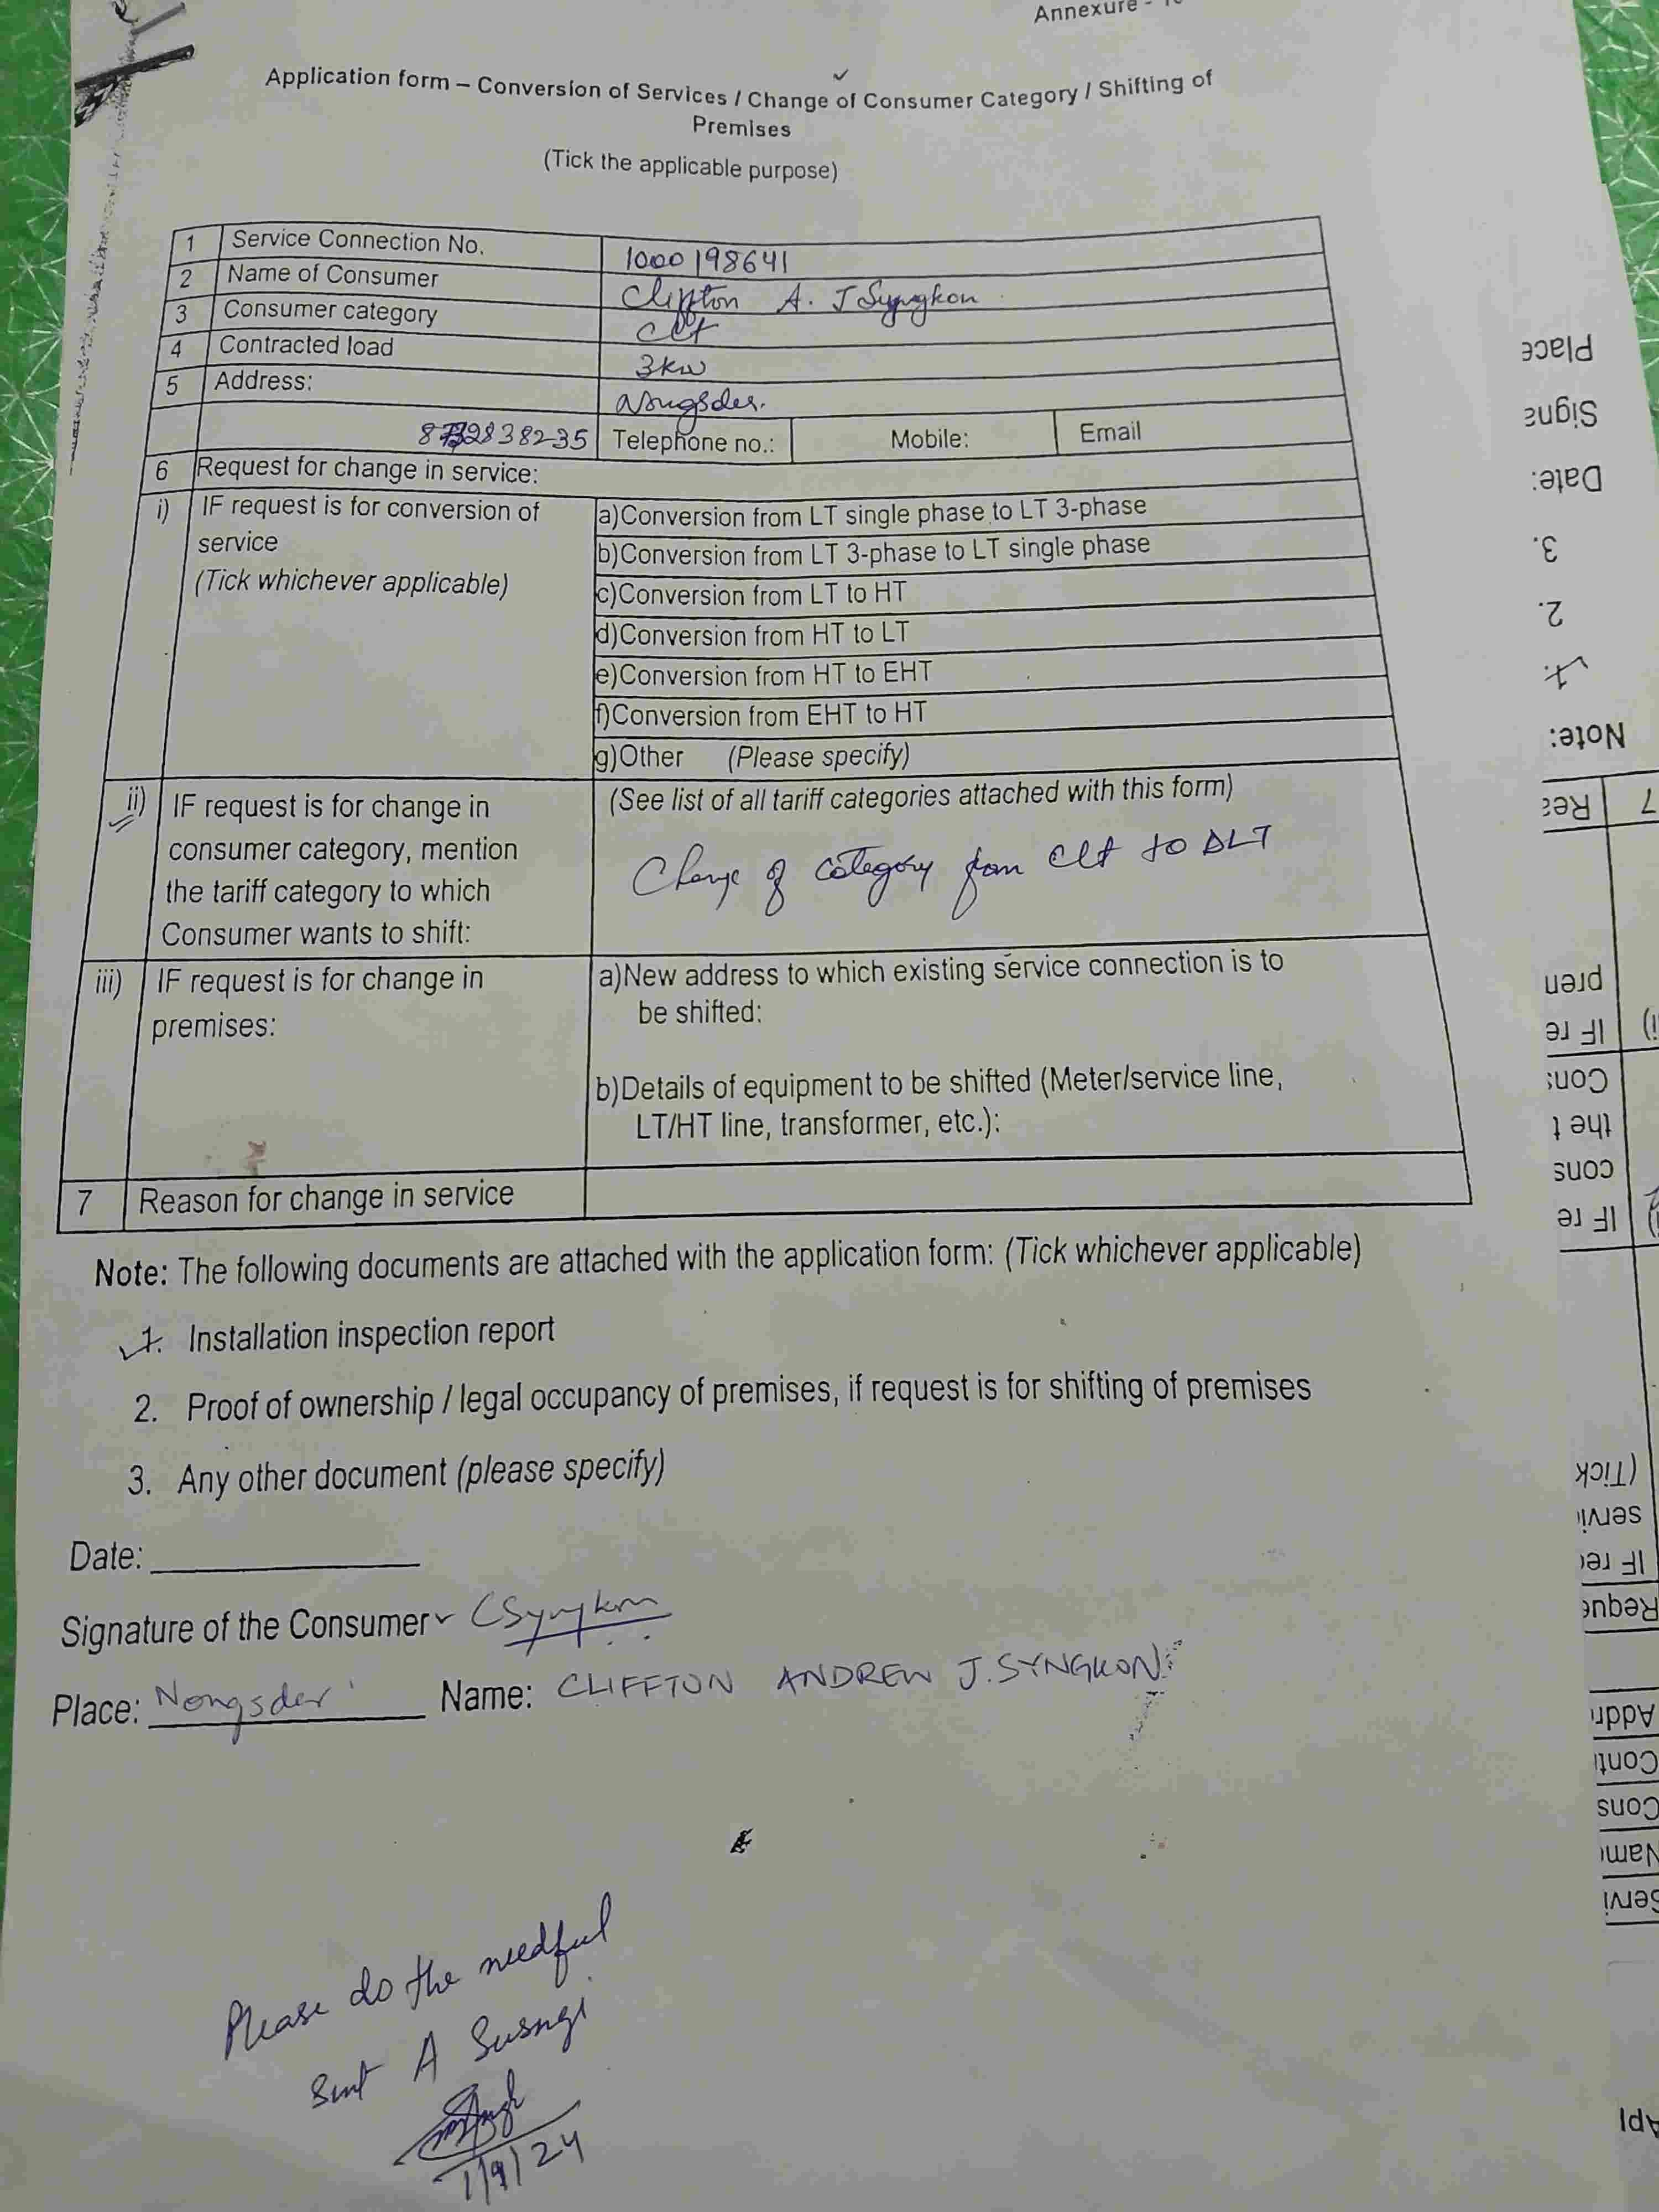 Annexure -
Application form – Conversion of Services / Change of Consumer Category / Shifting of
Premises
(Tick the applicable purpose)
1 Service Connection No. 1000198641
2 Name of Consumer Cliffton A. J Syngkon
3 Consumer category CLT
4 Contracted load 3kw
5 Address: Nongsder.
8732838235 Telephone no.: Mobile: Email
6 Request for change in service:
i) IF request is for conversion of
service
(Tick whichever applicable)
a)Conversion from LT single phase to LT 3-phase
b)Conversion from LT 3-phase to LT single phase
c)Conversion from LT to HT
d)Conversion from HT to LT
e)Conversion from HT to EHT
f)Conversion from EHT to HT
g)Other (Please specify)
ii) IF request is for change in
consumer category, mention
the tariff category to which
Consumer wants to shift:
(See list of all tariff categories attached with this form)
Change of Category from CLT to DLT
iii) IF request is for change in
premises:
a)New address to which existing service connection is to
be shifted:
b)Details of equipment to be shifted (Meter/service line,
LT/HT line, transformer, etc.):
7 Reason for change in service
Note: The following documents are attached with the application form: (Tick whichever applicable)
1. Installation inspection report
2. Proof of ownership / legal occupancy of premises, if request is for shifting of premises
3. Any other document (please specify)
Date:
Signature of the Consumer CSyngkon
Place: Nongsder Name: CLIFFTON ANDREW J. SYNGKON
Please do the needful
Smt A Susngi
1/9/24
Place
Signa
Date:
3.
2.
1.
Note:
7 Rea
pren
IF re
Cons
the t
cons
IF re
(Tick
servi
IF rec
Reque
Addr
Cont
Cons
Name
Servi
Apl